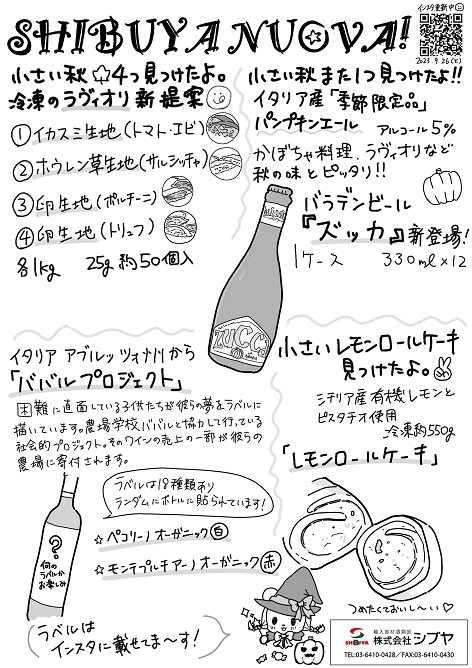 SHIBUYA NUOVA!
インスタ更新中
2023.9.26(火)
小さい秋☆4つ見つけたよ。
冷凍のラヴィオリ新提案
①イカスミ生地(トマト・エビ)
②ホウレン草生地(サルシッチャ)
③卵生地(ポルチーニ)
④卵生地(トリュフ)
各1kg 25g 約50個入
小さい秋また1つ見つけたよ!!
イタリア産「季節限定品」
パンプキンエール アルコール5%
かぼちゃ料理、ラヴィオリなど
秋の味とピッタリ!!
バラデンビール
『ズッカ』新登場!
1ケース 330ml×12
ZUCCA
イタリア アブルッツォ州から
「ババルプロジェクト」
困難に直面している子供たちが彼らの夢をラベルに
描いています。農場学校ババルと協力して行っている
社会的プロジェクト。そのワインの売上の一部が彼らの
農場に寄付されます。
ラベルは18種類あり
ランダムにボトルに貼られています!
?
何の
ラベルか
お楽しみ
☆ペコリーノオーガニック 白
☆モンテプルチアーノオーガニック 赤
ラベルは
インスタに載せてまーす!
小さいレモンロールケーキ
見つけたよ。
シチリア産有機レモンと
ピスタチオ使用
冷凍約550g
「レモンロールケーキ」
つめたくておいしい〜♡
SHIBUYA
輸入食材酒類部
株式会社シブヤ
TEL:03-6410-0428／FAX:03-6410-0430